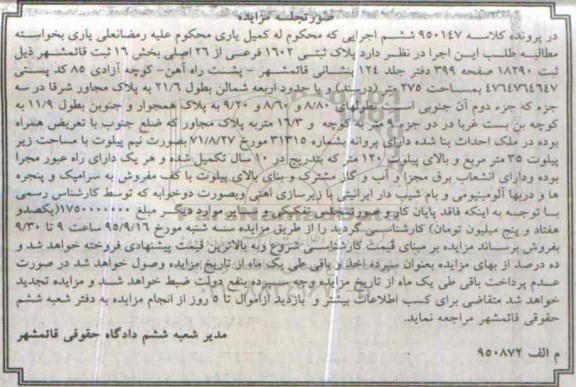 صورتجلسه مزایده
در پرونده کلاسه ۹۵۰۱۴۷ ششم اجرایی که محکوم له کمیل یاری محکوم علیه رمضانعلی یاری بخواسته
مطالبه طلب این اجرا در نظر دارد پلاک ثبتی ۱۶۰۲ فرعی از ۲۶ اصلی بخش ۱۶ ثبت قائمشهر ذیل
ثبت ۱۸۲۹۰ صفحه ۳۹۹ دفتر جلد ۱۲۴ بنشانی قائمشهر - پشت راه آهن- کوچه آزادی ۸۵ کد پستی
۴۷۶۴۷۶۴۶۴۷ بمساحت ۲۷۵ متر (دربند) و با حدود اربعه شمالن بطول ۲۱/۶ به پلاک مجاور شرقا در سه
جزء که جزء دوم آن جنوبی است بطولهای ۸/۸۰ و ۸/۶۷ و ۹/۲۰ به پلاک همجوار و جنوبن بطول ۱۱/۹ به
کوچه بن بست غربا در دو جزء ۲ متر به کوچه و ۱۶/۳ متربه پلاک مجاور که ضلع جنوب با تعریض همراه
بوده در ملک احداث بنا شده دارای پروانه شماره ۳۱۳۱۵ مورخ ۷۱/۸/۲۷ بصورت نیم پیلوت با مساحت زیر
پیلوت ۳۵ متر مربع و بالای پیلوت ۱۲۰ متر که بتدریج در ۱۰ سال تکمیل شده و هر یک دارای راه عبور مجزا
بوده ودارای انشعاب برق مجزا و آب و گاز مشترک و بنای بالای پیلوت با کف مفروش به سرامیک و پنجره
ها و دربها آلومینیومی و بام شیب دار ایرانیتی با زیرسازی آهنی وبصورت دوخوابه که توسط کارشناس رسمی
با توجه به اینکه فاقد پایان کار و صورتجلس تفکیکی و سایر موارد دیگر مبلغ ۱۷۵۰۰۰۰۰۰۰(یکصدو
هفتاد و پنج میلیون تومان) کارشناسی گردید را از طریق مزایده سه شنبه مورخ ۹۵/۹/۱۶ ساعت ۹ تا ۹/۳۰
بفروش برساند مزایده بر مبنای قیمت کارشناسی شروع وبه بالاترین قیمت پیشنهادی فروخته خواهد شد و
ده درصد از بهای مزایده بعنوان سپرده اخذ و باقی طی یک ماه از تاریخ مزایده وصول خواهد شد در صورت
عدم پرداخت باقی طی یک ماه از تاریخ مزایده وجه سپرده بنفع دولت ضبط خواهد شد و مزایده تجدید
خواهد شد متقاضی برای کسب اطلاعات بیشتر و بازدید ازاموال تا ۵ روز از انجام مزایده به دفتر شعبه ششم
حقوقی قائمشهر مراجعه نماید.
مدیر شعبه ششم دادگاه حقوقی قائمشهر
م الف ۹۵۰۸۷۲